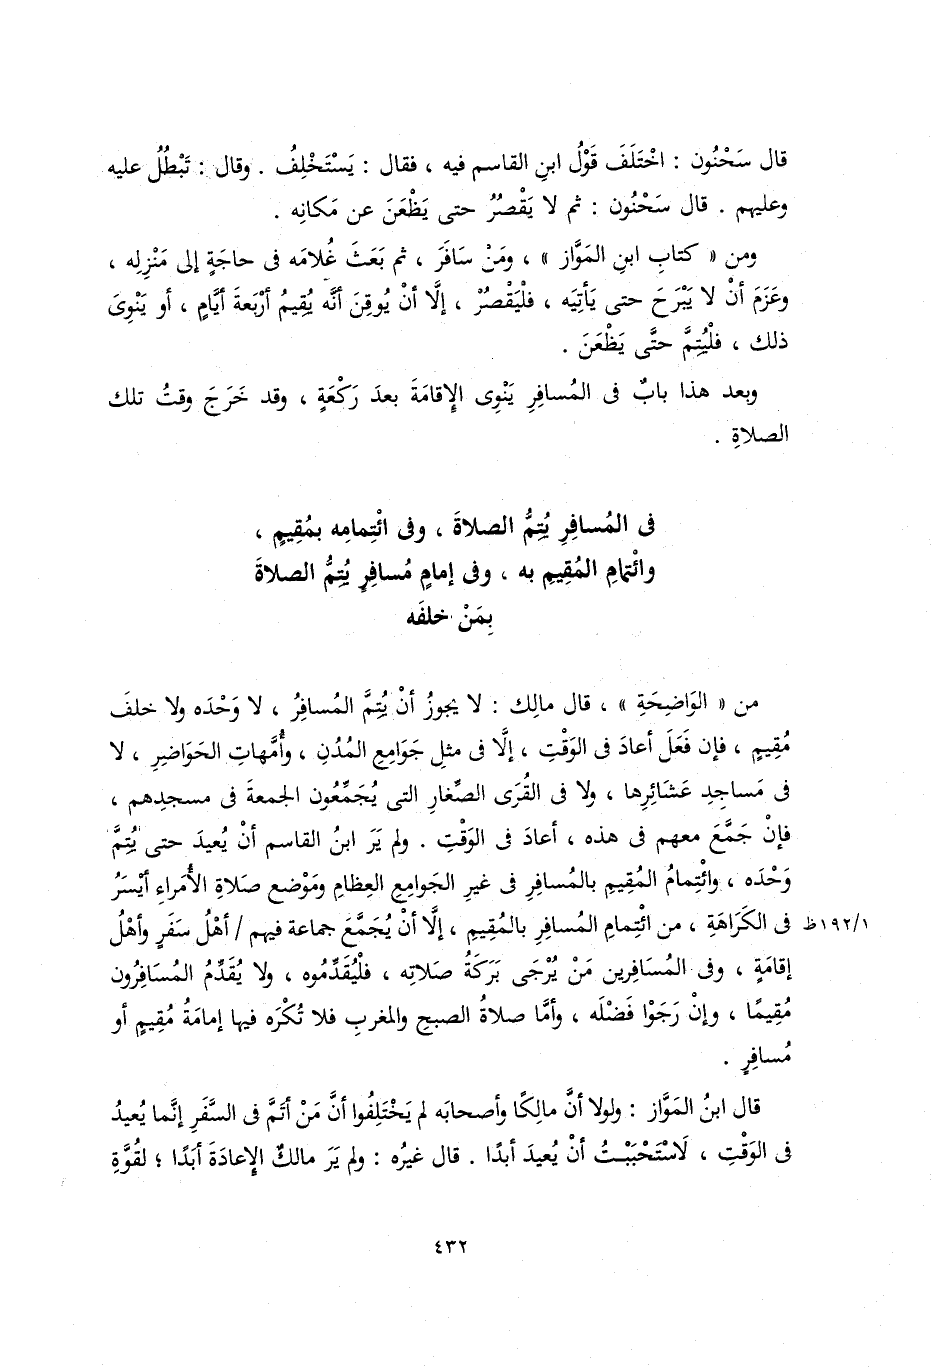 قال سَحْنُون : اخْتَلَفَ قَوْلُ ابنِ القاسم فيه ، فقال : يَسْتَخْلِفُ . وقال : تَبْطُلُ عليه
وعليهم . قال سَحْنُون : ثم لا يَقْصُرُ حتى يَظْعَنَ عن مَكانِه .
ومن « كتابِ ابنِ المَوَّاز » ، ومَنْ سافَرَ ، ثم بَعَثَ غُلامَه فى حاجَةٍ إلى مَنْزِلِه ،
وعَزَمَ أنْ لا يَبْرَحَ حتى يَأتِيَه ، فلْيَقْصُرْ ، إلَّا أنْ يُوقِنَ أنَّه يُقِيمُ أرْبَعةَ أيَّامٍ ، أو يَنْوِىَ
ذلك ، فلْيُتِمَّ حتَّى يَظْعَنَ .
وبعد هذا بابٌ فى المُسافِرِ يَنْوِى الإقامَةَ بعدَ رَكْعَةٍ ، وقد خَرَجَ وقتُ تلك
الصلاةِ .
فى المُسافِرِ يُتِمُّ الصلاةَ ، وفى ائْتِمامِه بمُقِيمٍ ،
وائْتِمامِ المُقِيمِ به ، وفى إمامٍ مُسافِرٍ يُتِمُّ الصلاةَ
بِمَنْ خلفَه
من « الوَاضِحَةِ » ، قال مالِك : لا يجوزُ أنْ يُتِمَّ المُسافِرُ ، لا وَحْدَه ولا خلفَ
مُقِيمٍ ، فإن فَعَلَ أعادَ فى الوَقْتِ ، إلَّا فى مثلِ جَوَامِعِ المُدُنِ ، وأُمَّهاتِ الحَوَاضِرِ ، لا
فى مَساجِدِ عَشائِرِها ، ولا فى القُرَى الصِّغارِ التى يُجَمِّعُون الجمعةَ فى مسجدِهم ،
فإنْ جَمَّعَ معهم فى هذه ، أعادَ فى الوَقْتِ . ولم يَرَ ابنُ القاسم أنْ يُعِيدَ حتى يُتِمَّ
وَحْدَه ، وائْتِمامُ المُقِيمِ بالمُسافِرِ فى غيرِ الجوامِعِ العِظامِ ومَوْضِعِ صَلاةِ الأُمَراءِ أيْسَرُ
فى الكَرَاهَةِ ، من ائْتِمامِ المُسافِرِ بالمُقِيمِ ، إلَّا أنْ يُجَمَّعَ جماعة فيهم / أهْلُ سَفَرٍ وأهْلُ ١/١٩٢ظ
إقامَةٍ ، وفى المُسَافِرِين مَنْ يُرْجَى بَرَكَةُ صَلاتِه ، فلْيُقَدِّمُوه ، ولا يُقَدِّمُ المُسَافِرُون
مُقِيمًا ، وإنْ رَجَوْا فَضْلَه ، وأمَّا صلاةُ الصبحِ والمغربِ فلا تُكْرَه فيها إمامَةُ مُقِيمٍ أو
مُسافِرٍ .
قال ابنُ المَوَّاز : ولولا أنَّ مالِكًا وأصحابَه لم يَخْتَلِفُوا أنَّ مَنْ أتَمَّ فى السَّفَرِ إنَّما يُعيدُ
فى الوَقْتِ ، لَاسْتَحْبَبْتُ أنْ يُعيدَ أبدًا . قال غيرُه : ولم يَرَ مالكٌ الإعادَةَ أبَدًا ؛ لقُوَّةِ
٤٣٢